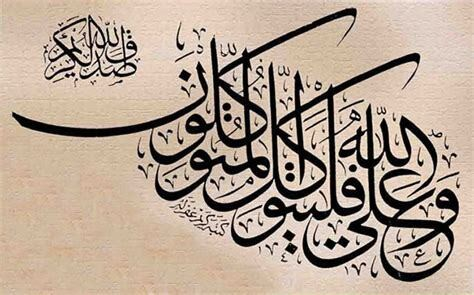 وعلى الله فليتوكل المتوكلون
صدق الله الكريم